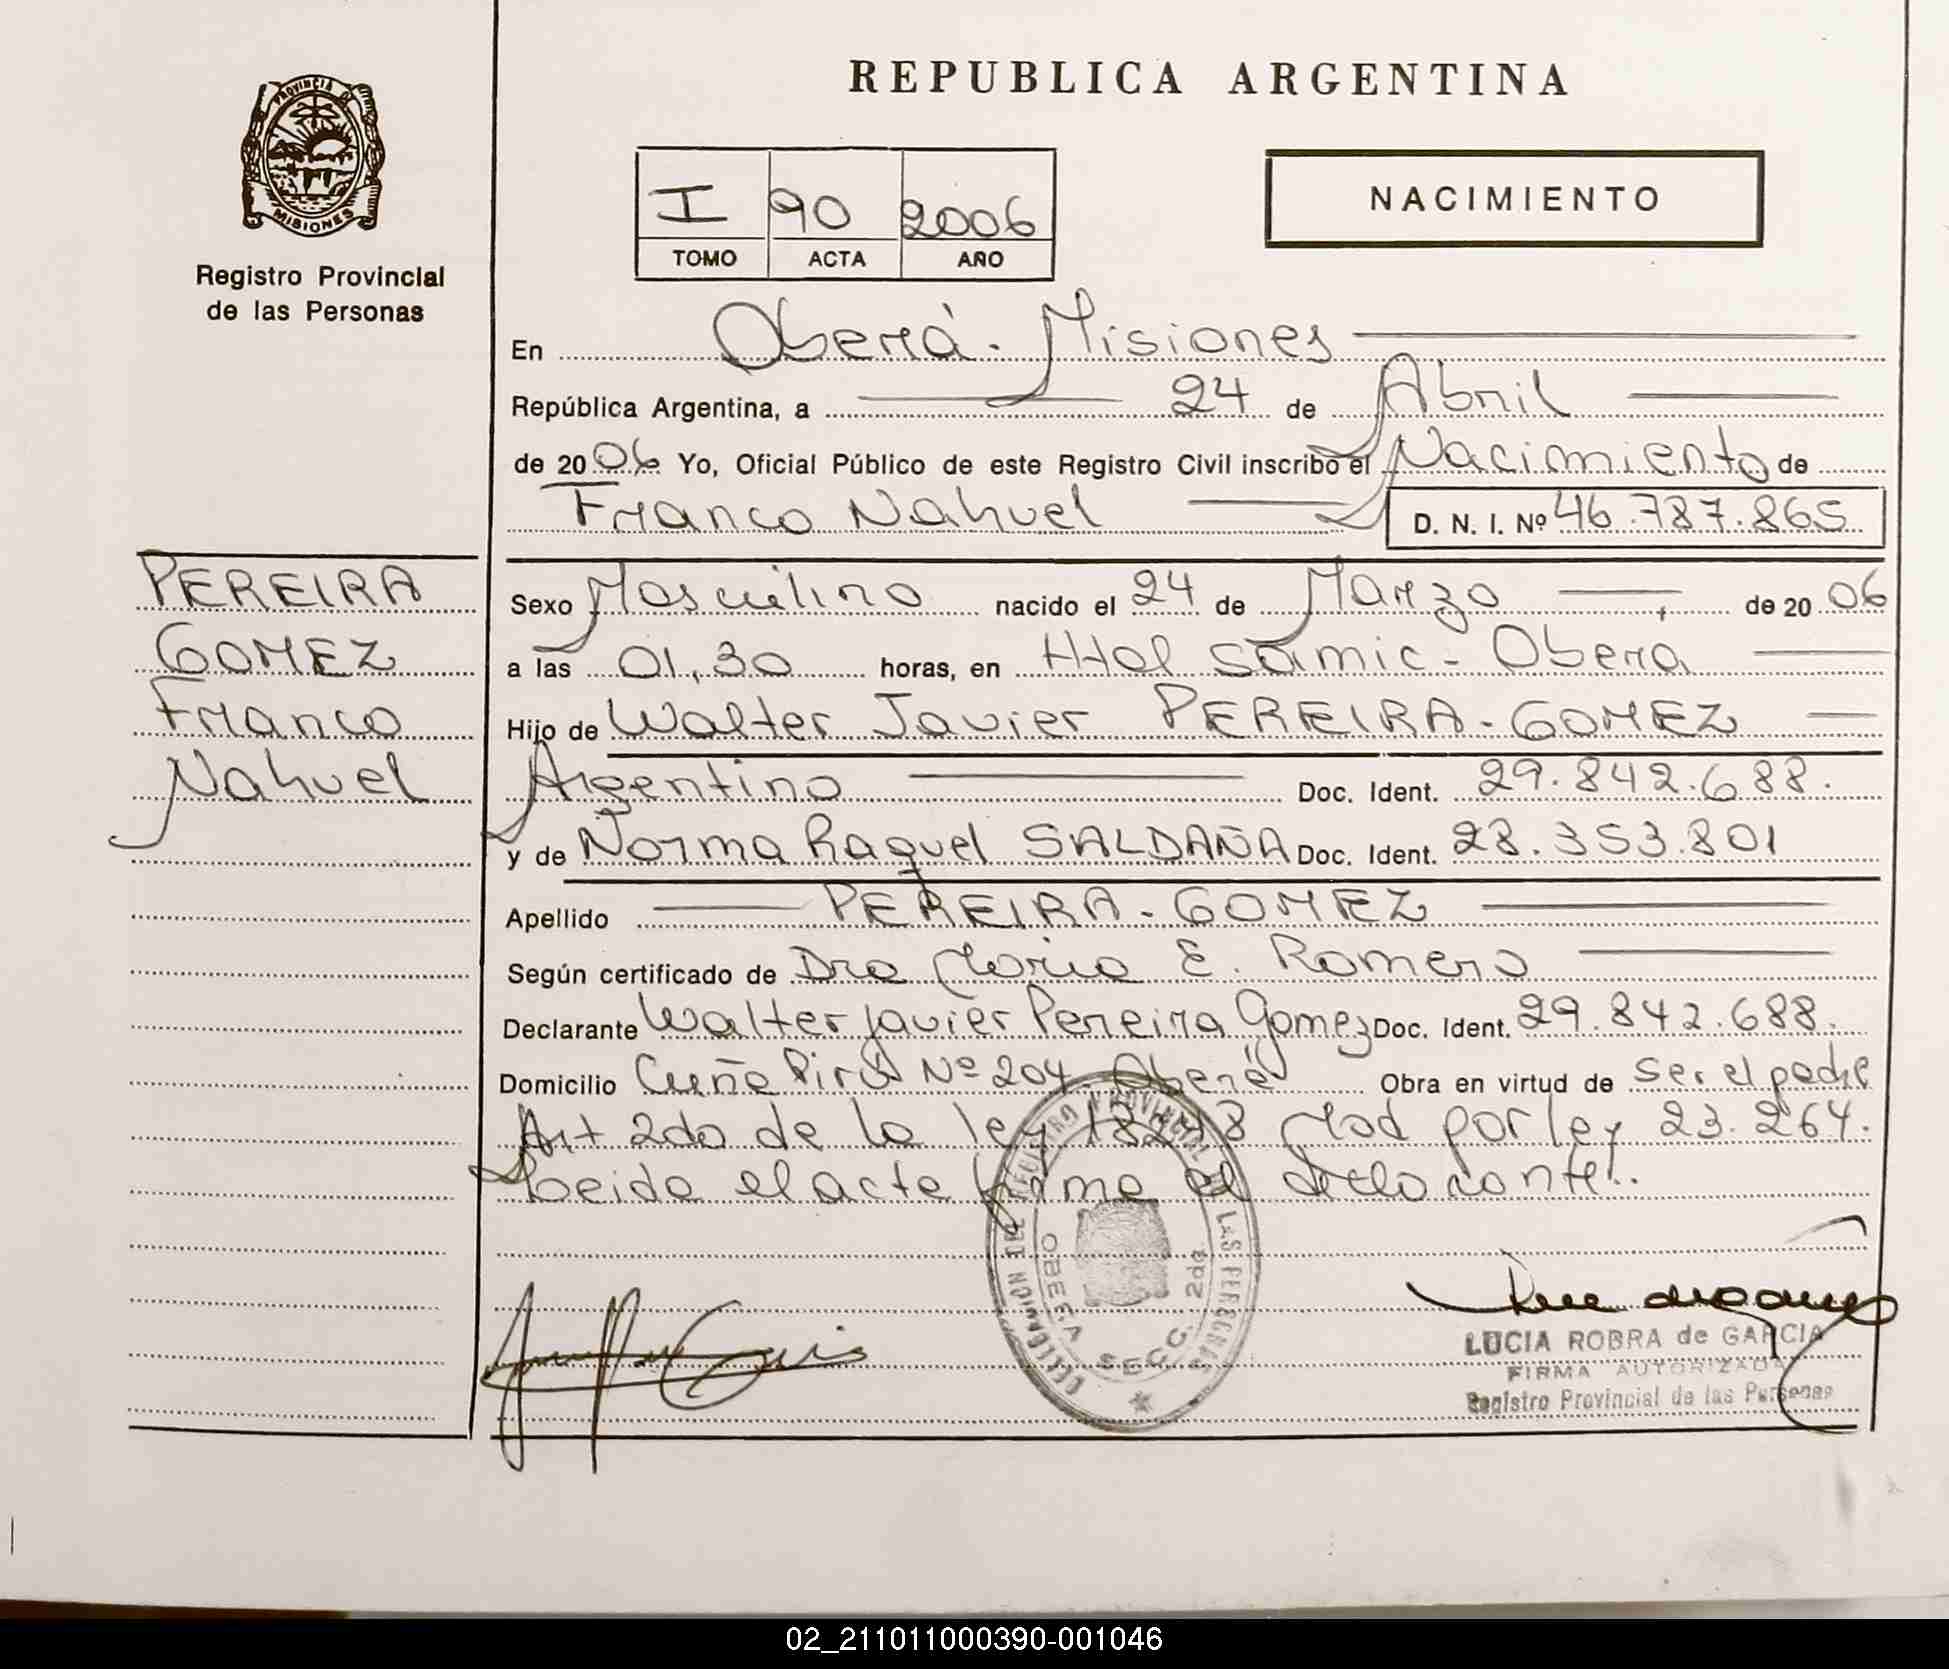 REPUBLICA ARGENTINA
PROVINCIA DE
MISIONES
Registro Provincial
de las Personas
I 90 2006
TOMO ACTA AÑO
NACIMIENTO
En Oberá - Misiones
República Argentina, a 24 de Abril
de 2006 Yo, Oficial Público de este Registro Civil inscribo el Nacimiento de
Franco Nahuel D. N. I. Nº 46.787.865
PEREIRA
GOMEZ
Franco
Nahuel
Sexo Masculino nacido el 24 de Marzo, de 2006
a las 01,30 horas, en Htal Samic - Obera
Hijo de Walter Javier PEREIRA - GOMEZ
Argentino Doc. Ident. 29.842.688.
y de Norma Raquel SALDAÑA Doc. Ident. 28.353.801
Apellido PEREIRA - GOMEZ
Según certificado de Dra Maria E. Romero
Declarante Walter Javier Pereira Gomez Doc. Ident. 29.842.688.
Domicilio Cuña Pirú Nº 204. Oberá Obra en virtud de ser el padre
Art 2do de la ley 18248 Mod por ley 23.264.
Leida el acta firma el declarante.
DELEGACION DEL REGISTRO PROVINCIAL DE LAS PERSONAS
OBERA SECC. 2da.
LUCIA ROBRA de GARCIA
FIRMA AUTORIZADA
Registro Provincial de las Personas
02_211011000390-001046